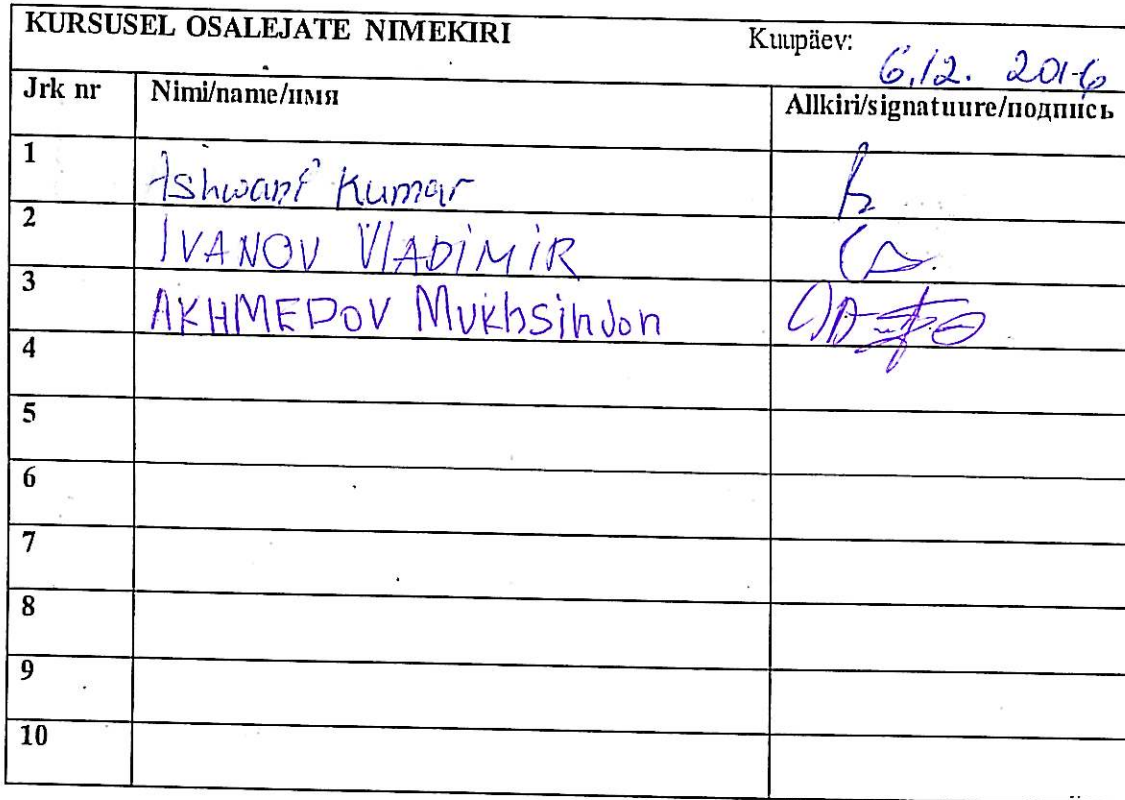 KURSUSEL OSALEJATE NIMEKIRI Kuupäev: 6.12. 2016
Jrk nr Nimi/name/имя Allkiri/signatuure/подпись
1 Ishwant Kumar
2 IVANOV VlADiMiR
3 AKHMEDOV Mukhsinjon
4
5
6
7
8
9
10